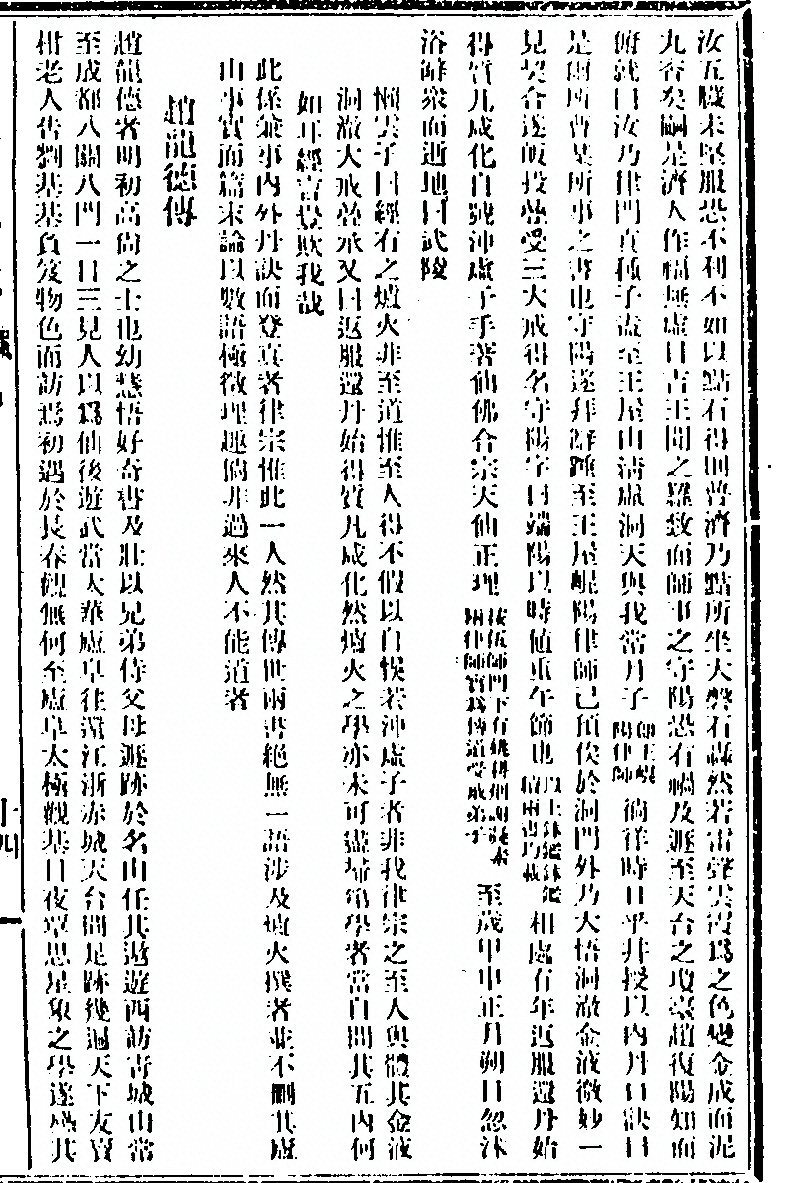 汝五臟未堅服恐不利不如以點石得則普濟乃點所坐大磐石轟然若雷聲雲霞爲之色變金成而泥
九杳矣嗣是濟人作福無虛日吉王聞之嚴致而師事之守陽恐有禍及遯至天台之瓊臺趙復陽知而
俯就曰汝乃律門真種子盍至王屋山淸虛洞天與我當月子
卽王崐陽律師
徜徉時日乎幷授以內丹口訣曰
是爾所曾某所事之書也守陽遂拜辭踵至王屋崐陽律師已預俟於洞門外乃大悟洞澈金液微妙一
見契合遂皈投慈受三大戒得名守陽字曰端陽以時値重午節也
以上鉢鑑鉢鑑續兩書均載
相處有年返服還丹始
得質凡成化自號沖虛子手著仙佛合宗天仙正理
至歲甲申正月朔日忽沐
浴辭衆而逝地曰武陵
懶雲子曰經有之爐火非至道惟至人得不假以自悞若沖虛子者非我律宗之至人與體其金液
洞澈大戒莖承又曰返服還丹始得質凡成化然爐火之學亦未可盡掃第學者當自問其五內何
如耳經言豈欺我哉
此係兼事內外丹訣而登真者律宗惟此一人然其傳世兩書絕無一語涉及爐火撰者並不刪其盧
山事實而篇末論以數語極微理趣倘非過來人不能道者
趙龍德傳
趙龍德者明初高尙之士也幼慧悟好奇書及壯以兄弟侍父母遯跡於名山任其遨遊西訪靑城山當
至成都八關八門一日三見人以爲仙後遊武當太華廬阜往還江浙赤城天台間足跡幾遍天下友賣
柑老人告劉基基負笈物色而訪焉初遇於長春觀無何至廬阜太極觀基日夜覃思星象之學遂盡其
十四